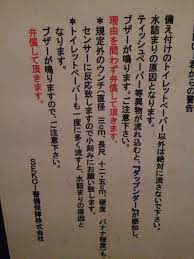 備え付けのトイレットペーパー以外は絶対に流さないで下さい。
水詰まりの原因となります。
ティッシュペーパー等異物が流れ込むと、『ダップンダー』が感知し、
ブザーが鳴ります。ご注意下さい。
理由を問わず弁償して頂きます。
＊規定外のウンチ（直径 三cm、長尺 十二・五cm、硬度 バナナ程度）も
センサーに反応致しますので小刻みにお願い致します。
＊トイレットペーパーも一度に多く流すと、水詰まりの原因と
なります。
ブザーが鳴りますので、ご注意下さい。
弁償して頂きます。
警備保障株式会社